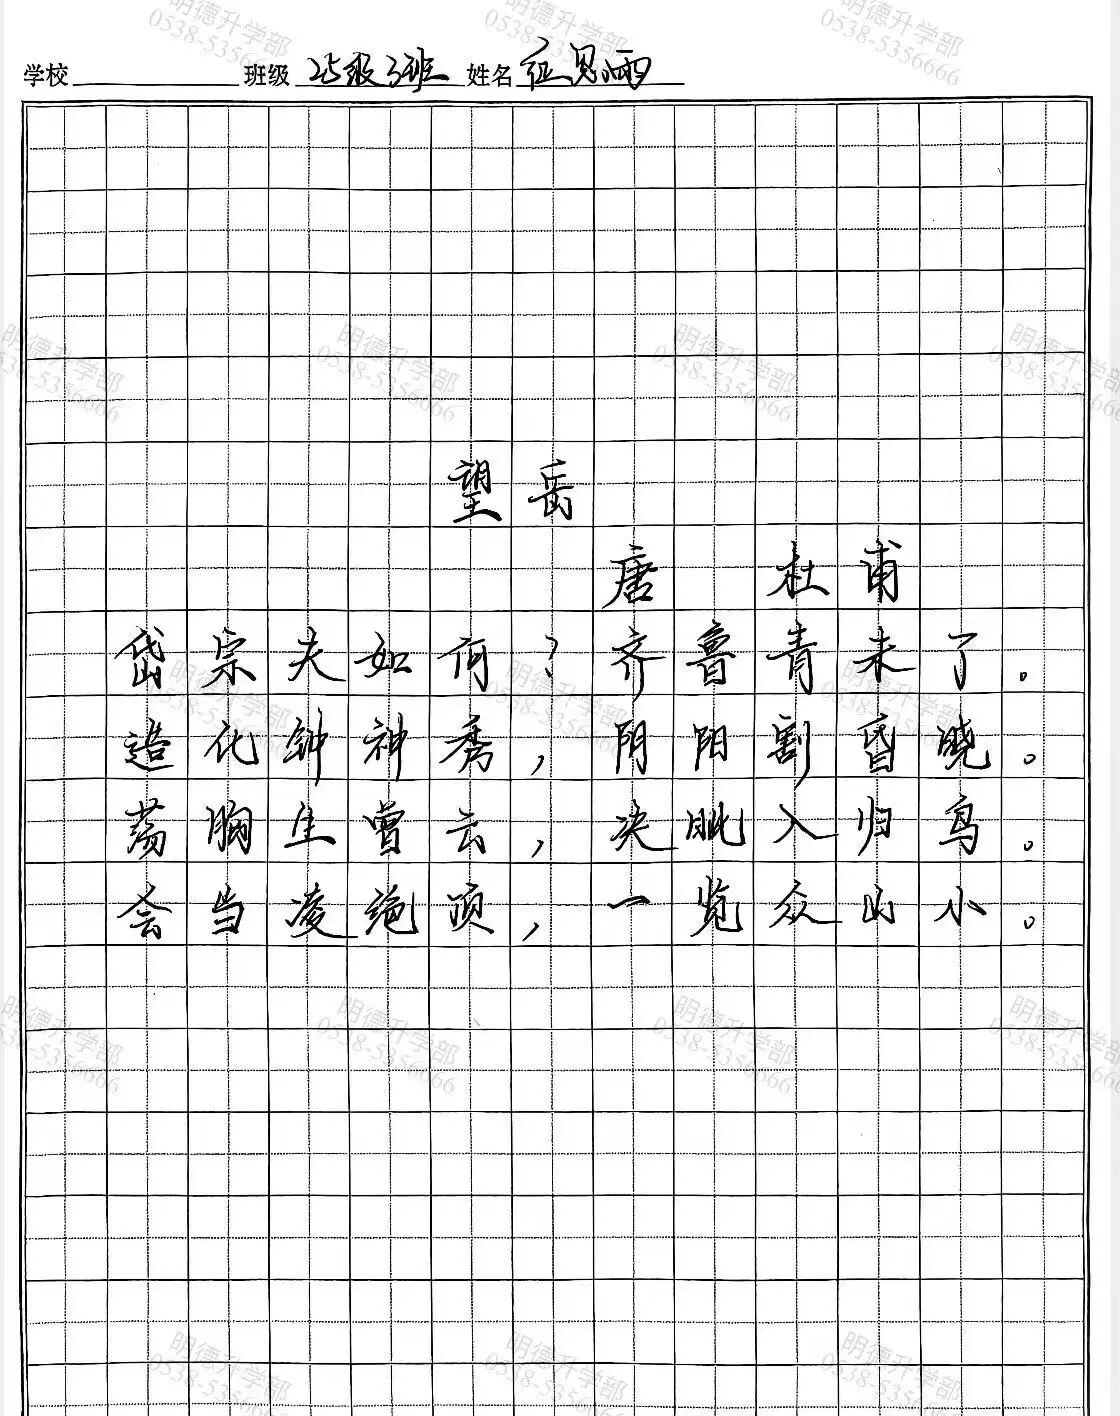 明德升学部
0538-5356666
学校 班级 25级3班 姓名 征思雨
望岳
唐 杜甫
岱宗夫如何？齐鲁青未了。
造化钟神秀，阴阳割昏晓。
荡胸生曾云，决眦入归鸟。
会当凌绝顶，一览众山小。